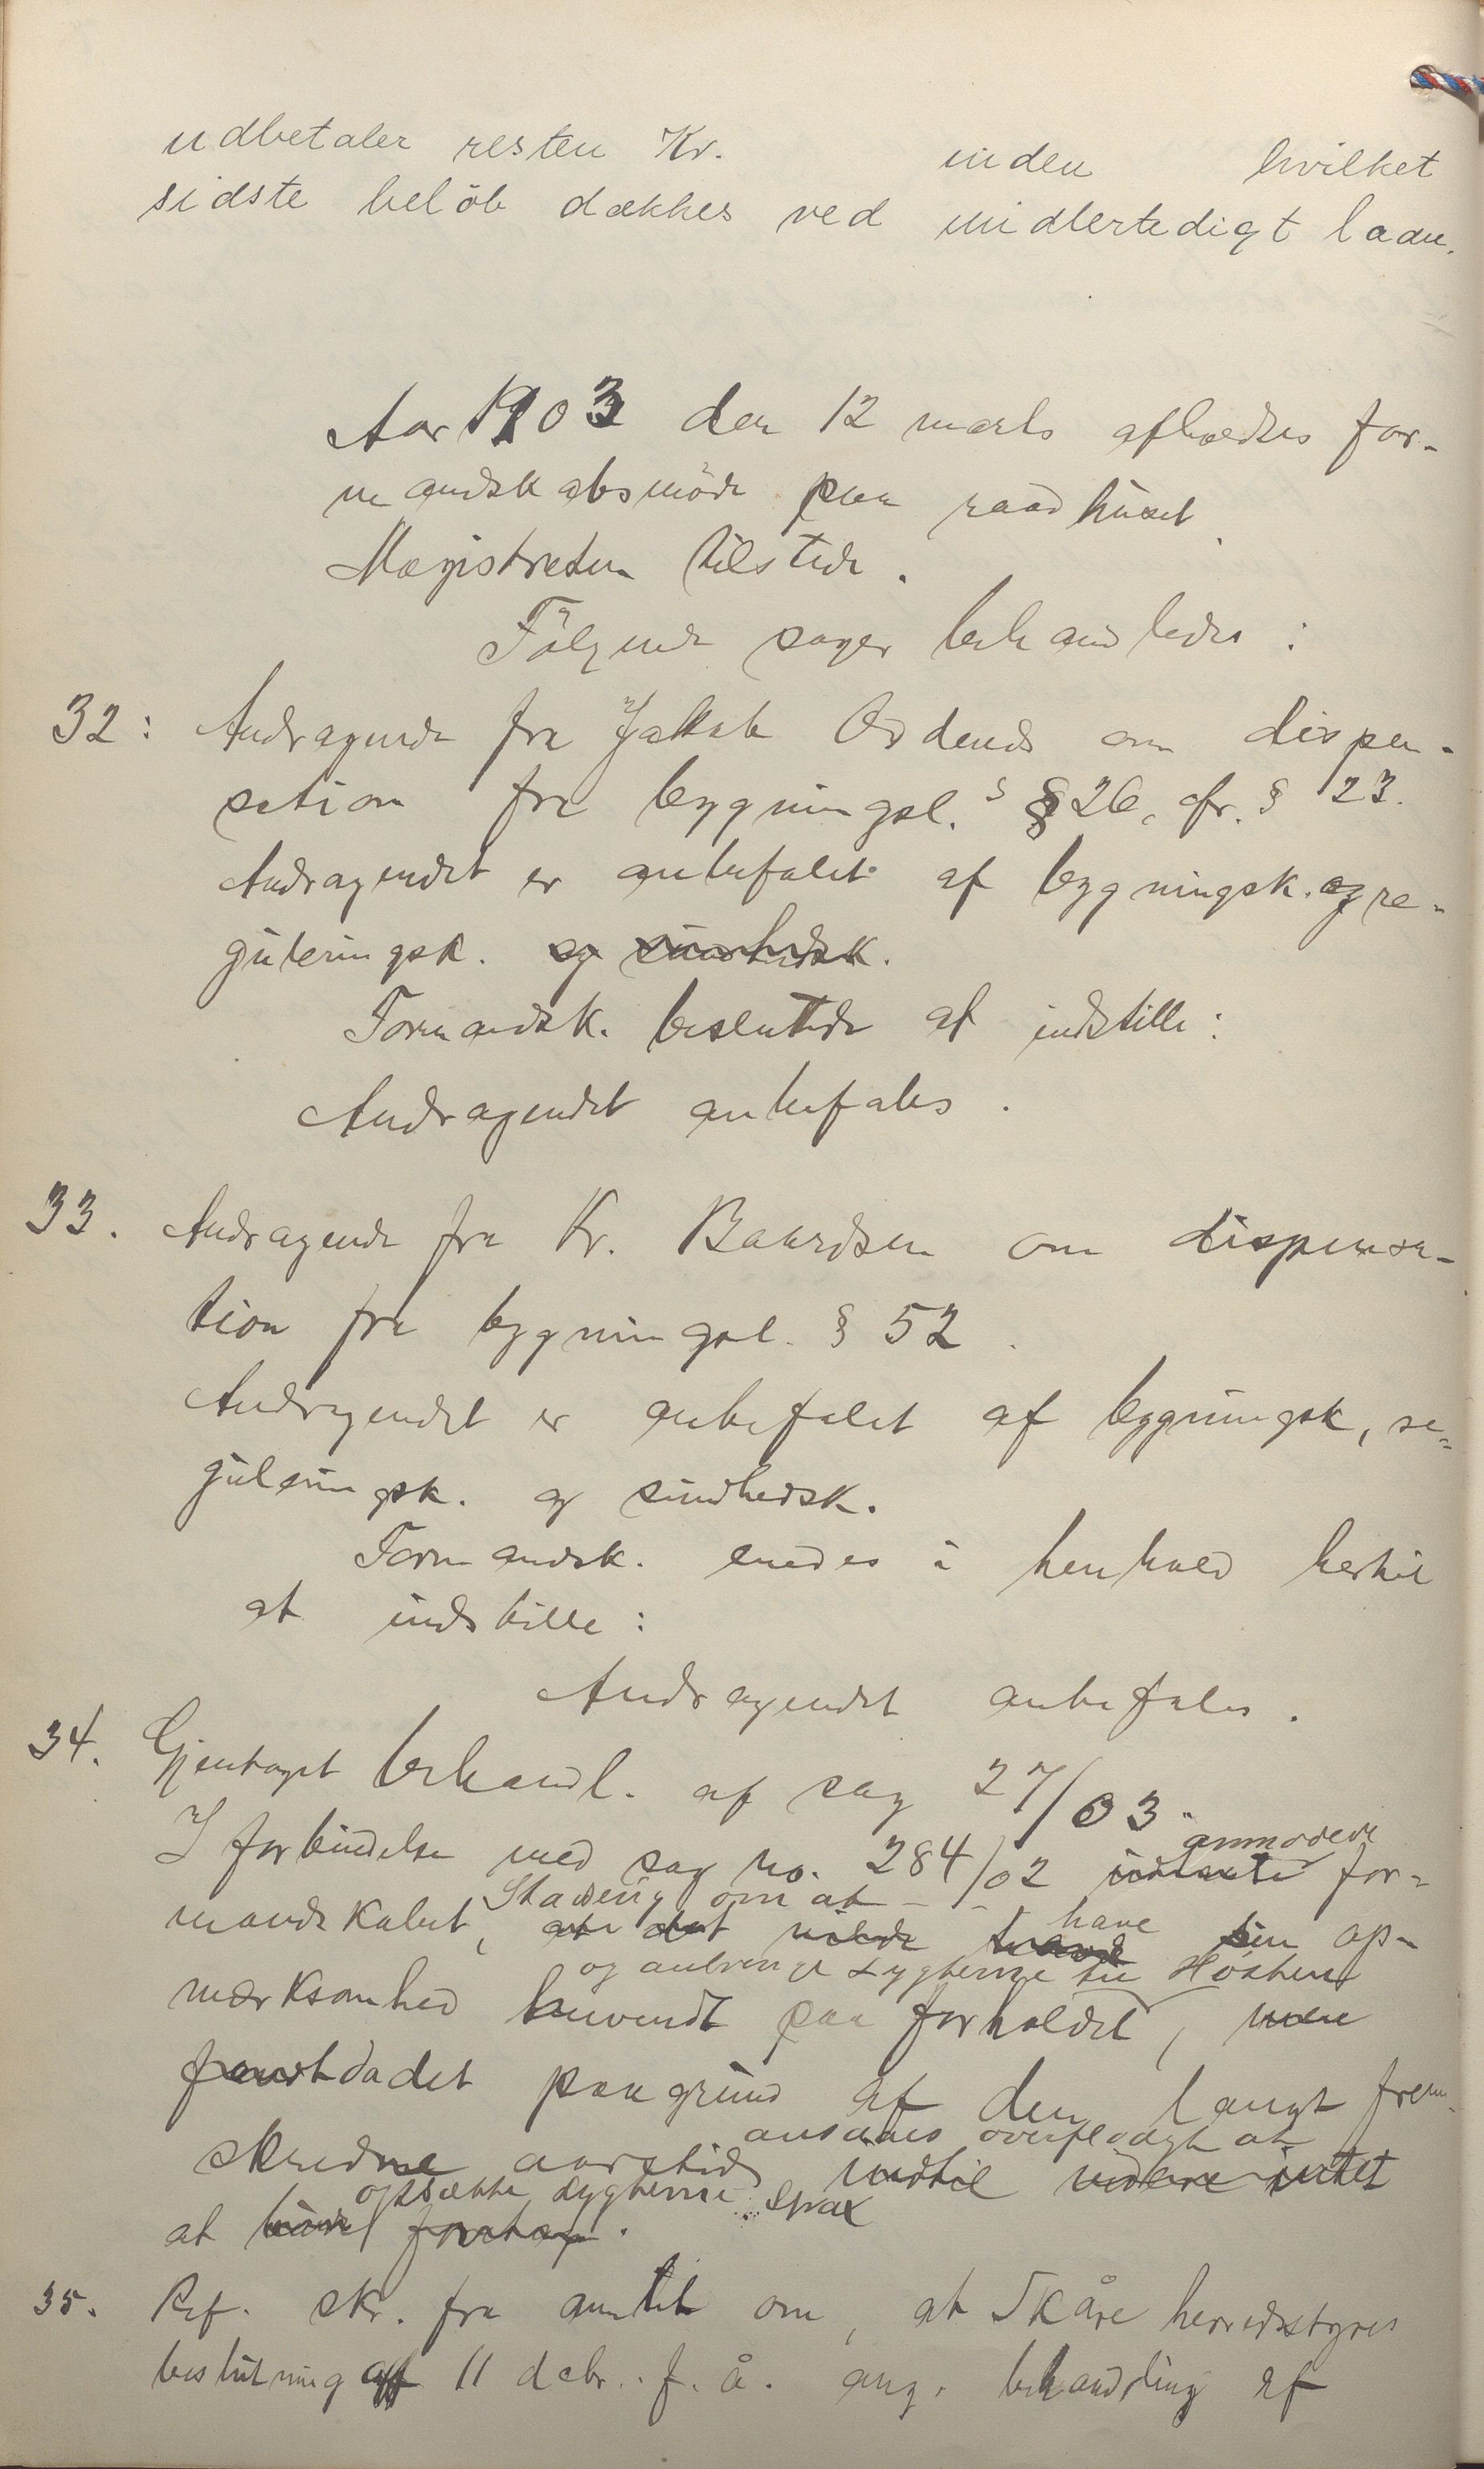 udbetaler resten Kr. inden hvilket
sidste belöb dækkes ved midlertedigt laan.
Aar 1903 den 12 marts afholdtes for-
mandskabsmöde paa raadhuset.
Magistraten tilstede.
Fölgende sager behandledes:
32: Andragende fra Jakob Ordends om dispen-
sation fra bygningsl.s § 26, cfr. § 23.
Andragendet er anbefalet af bygningsk. og re-
guleringsk. og sundhedsk.
Formandsk. besluttede at indstille:
Andragendet anbefales.
33. Andragende fra Kr. Baardsen om dispensa-
tion fra bygningsl. § 52.
Andragendet er anbefalet af bygningsk, re-
guleringsk. og sundhedsk.
Formandsk. enedes i henhold hertil
at indstille:
Andragendet anbefales.
34. Gjentaget behandl. af sag 27/03.
anmodede
I forbindelse med sag no. 284/02 for-
om at
mandskabet, at det vilde have sin op-
og anbringe Lygterne til Hösten
mærksomhed henvendt paa forholdet, men
fandt da det paa grund af den langt frem-
ansaaes overflödigt at
skredne aarstid indtil videre intet
opsætte Lygterne strax
at foretage.
35. Ref. skr. fra amtet om, at Skåre herredsstyres
beslutning af 11 decbr. f. å. ang. behandling af